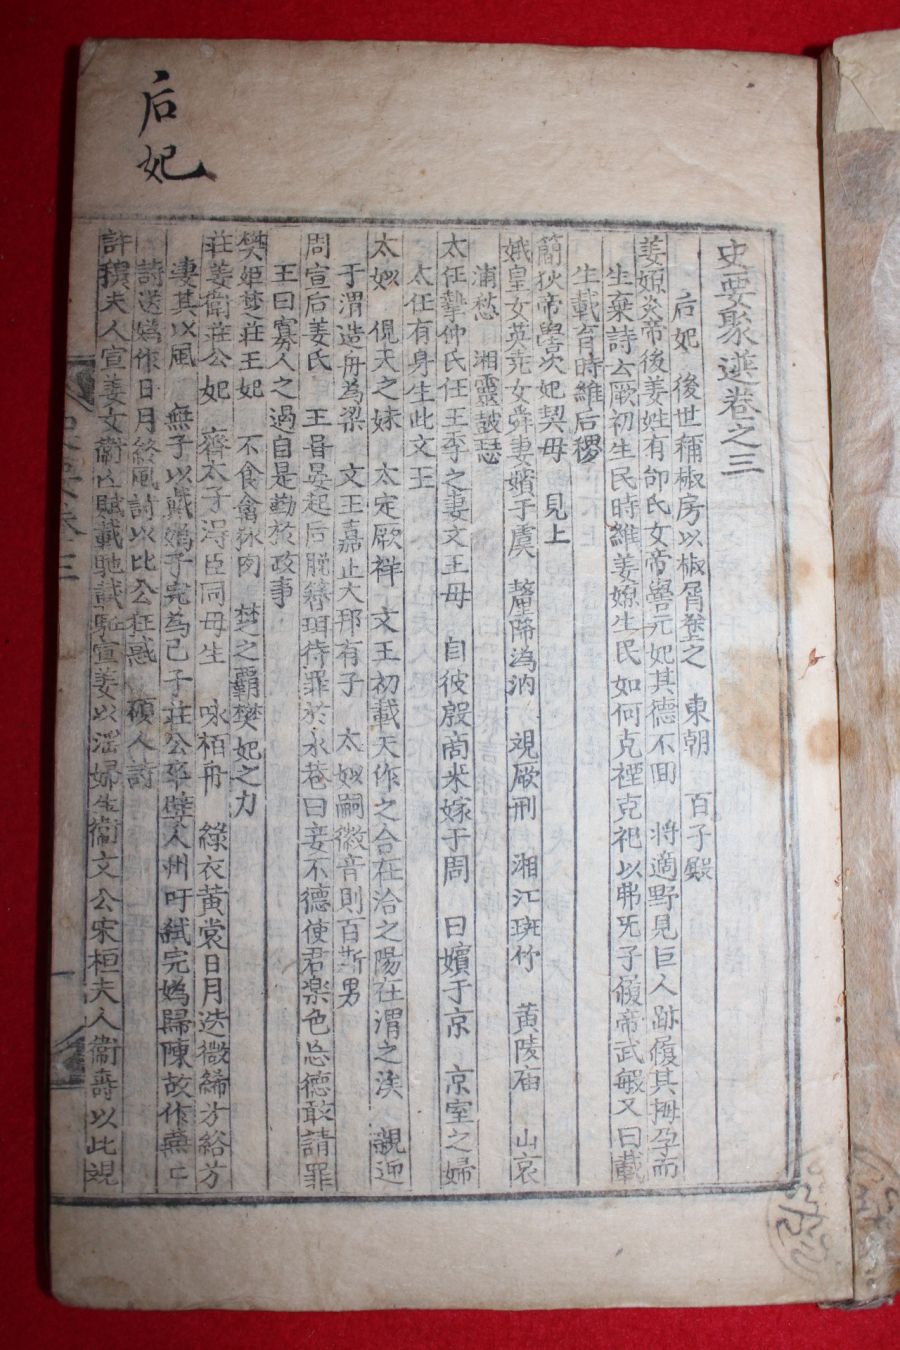 后妃
史要聚選卷之三
后妃 後世稱椒房以椒屑塗之 東朝 百子殿
姜嫄炎帝後姜姓有邰氏女帝嚳元妃其德不囬 將適野見巨人跡履其拇孕而
生棄詩云厥初生民時維姜嫄生民如何克禋克祀以弗旡子履帝武敏又曰載
生載育時維后稷
簡狄帝嚳次妃契母 見上
娥皇女英堯女舜妻嬪于虞 釐降潙汭 覌厥刑 湘江斑竹 黄陵庙 山哀
浦愁 湘靈鼓瑟
太任摯仲氏任王季之妻文王母 自彼殷商来嫁于周 曰嬪于京 京室之婦
太任有身生此文王
太姒 俔天之妹 太定厥祥 文王初載天作之合在洽之陽在渭之涘 親迎
于渭造舟為梁 文王嘉止大邦有子 太姒嗣徽音則百斯男
周宣后姜氏 王甞晏起后脱簮珥待罪於永巷曰妾不德使君楽色忘德敢請罪
王曰寡人之過自是勤於政事
樊姬楚莊王妃 不食禽獸肉 楚之覇樊妃之力
莊姜衛莊公妃 齊太子得臣同母生 咏栢舟 綠衣黄裳日月迭微絺兮綌兮
凄其以風 無子以戴嬀子完為己子莊公卒嬖人州吁弑完嬀歸陳故作燕二
詩送嬀作日月終風詩以比公狂惑 碩人詩
許穆夫人宣姜女衛 賦載馳 宣姜以淫婦生衛文公宋桓夫人衛壽以此覌